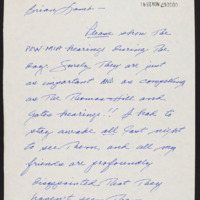 Brian Lamb:-
Please show the
POW-MIA hearings during the
day. Surely they are just
as important AND as compelling
as the Thomas-Hill and
Gates hearings!! I had to
stay awake all Sant. night
to see them, and all my
friends are profoundly
disappointed that they
haven't